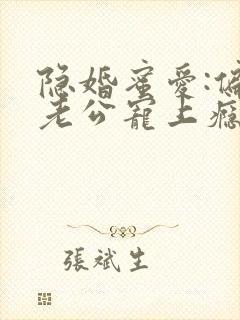 隐婚蜜爱:偏
老公寵上癮
張斌生